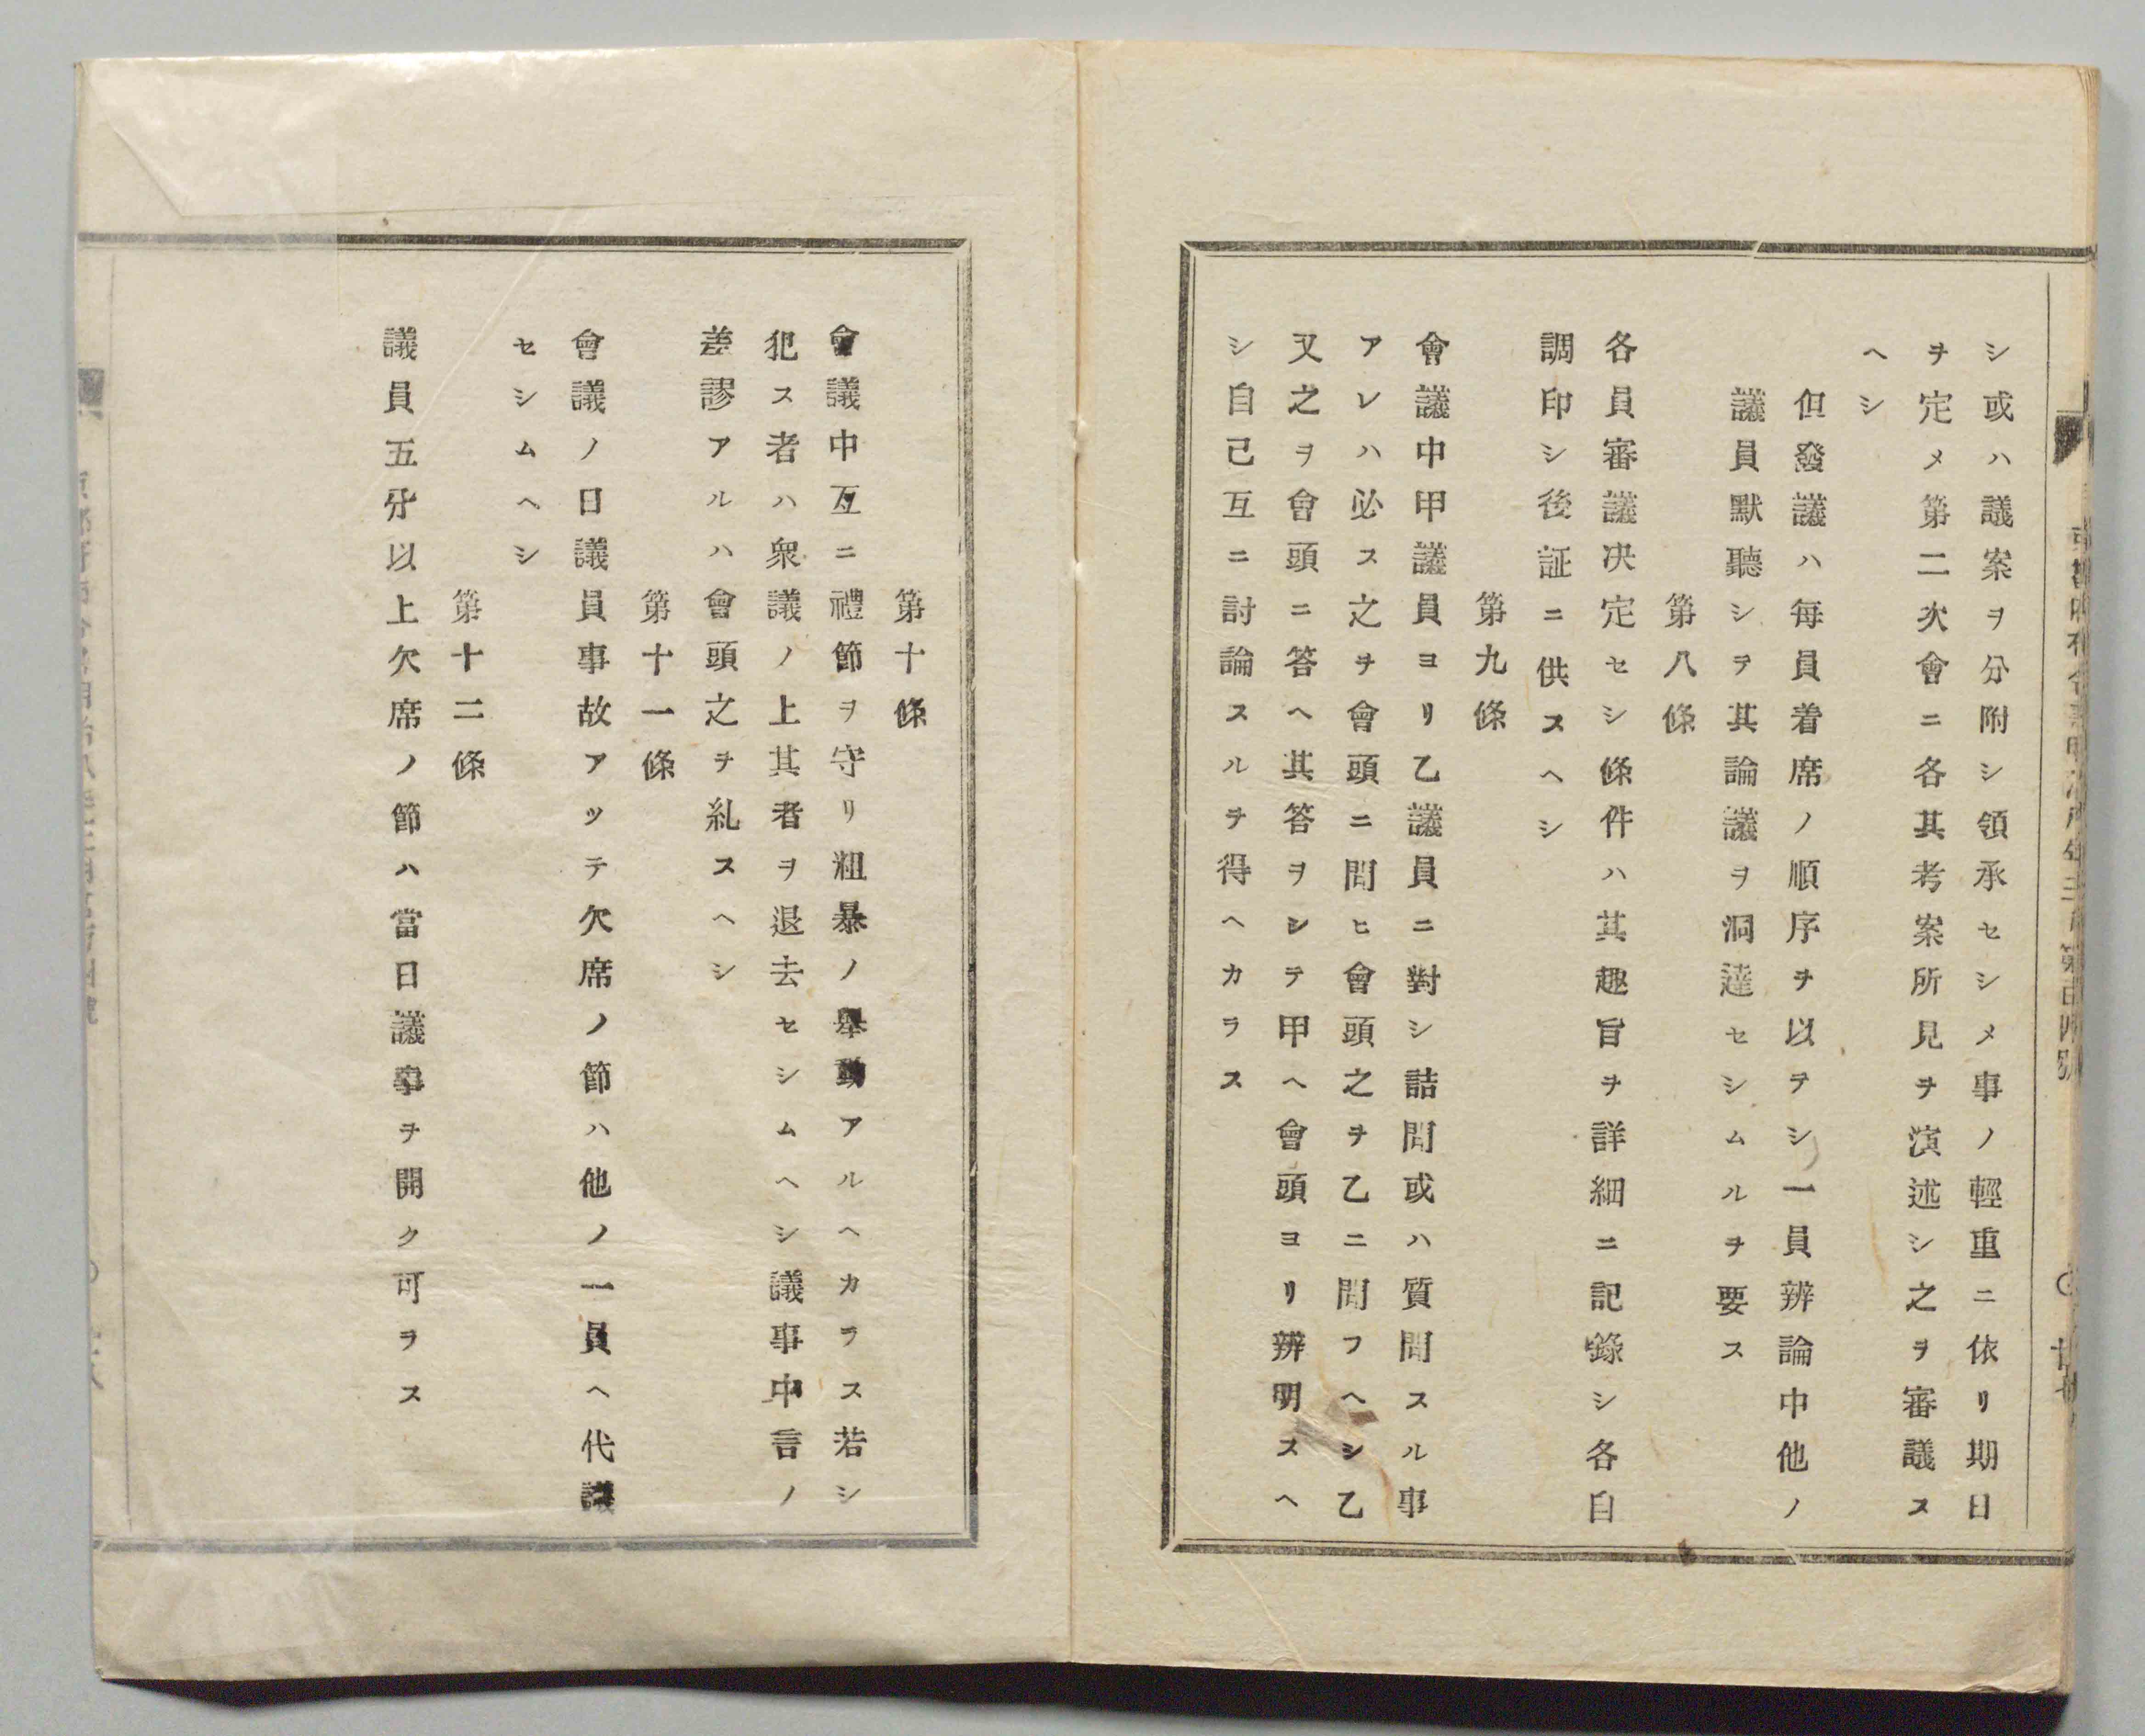 シ或ハ議案ヲ分附シ領承セシメ事ノ輕重ニ依リ期日
ヲ定メ第二次會ニ各其考案所見ヲ演述シ之ヲ審議ス
ヘシ
但發議ハ毎員着席ノ順序ヲ以テシ一員辨論中他ノ
議員默聽シテ其論議ヲ洞達セシムルヲ要ス
第八條
各員審議决定セシ條件ハ其趣旨ヲ詳細ニ記錄シ各自
調印シ後証ニ供スヘシ
第九條
會議中甲議員ヨリ乙議員ニ對シ詰問或ハ質問スル事
アレハ必ス之ヲ會頭ニ問ヒ會頭之ヲ乙ニ問フヘシ乙
又之ヲ會頭ニ答ヘ其答ヲシテ甲ヘ會頭ヨリ辨明スヘ
シ自己互ニ討論スルヲ得ヘカラス
第十條
會議中互ニ禮節ヲ守リ粗暴ノ舉動アルヘカラス若シ
犯ス者ハ衆議ノ上其者ヲ退去セシムヘシ議事中言ノ
差謬アルハ會頭之ヲ糺スヘシ
第十一條
會議ノ日議員事故アツテ欠席ノ節ハ他ノ一員ヘ代議
セシムヘシ
第十二條
議員五分以上欠席ノ節ハ當日議事ヲ開ク可ラス